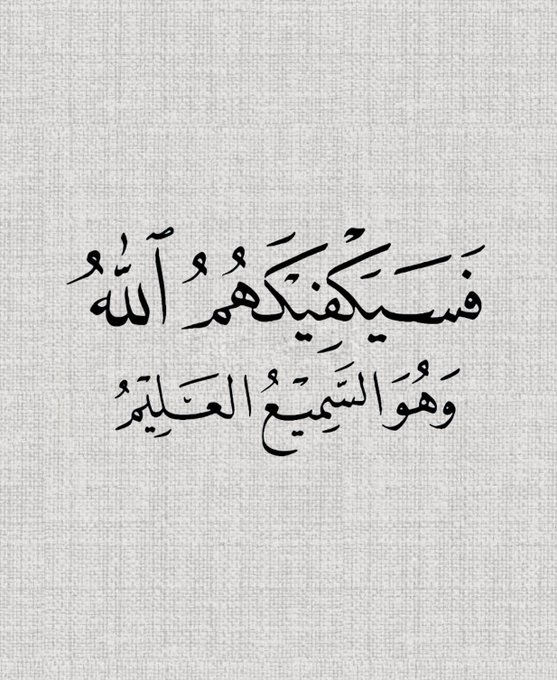 فَسَيَكْفِيكَهُمُ ٱللَّهُ
وَهُوَ السَّمِيْعُ العَلِيْمُ